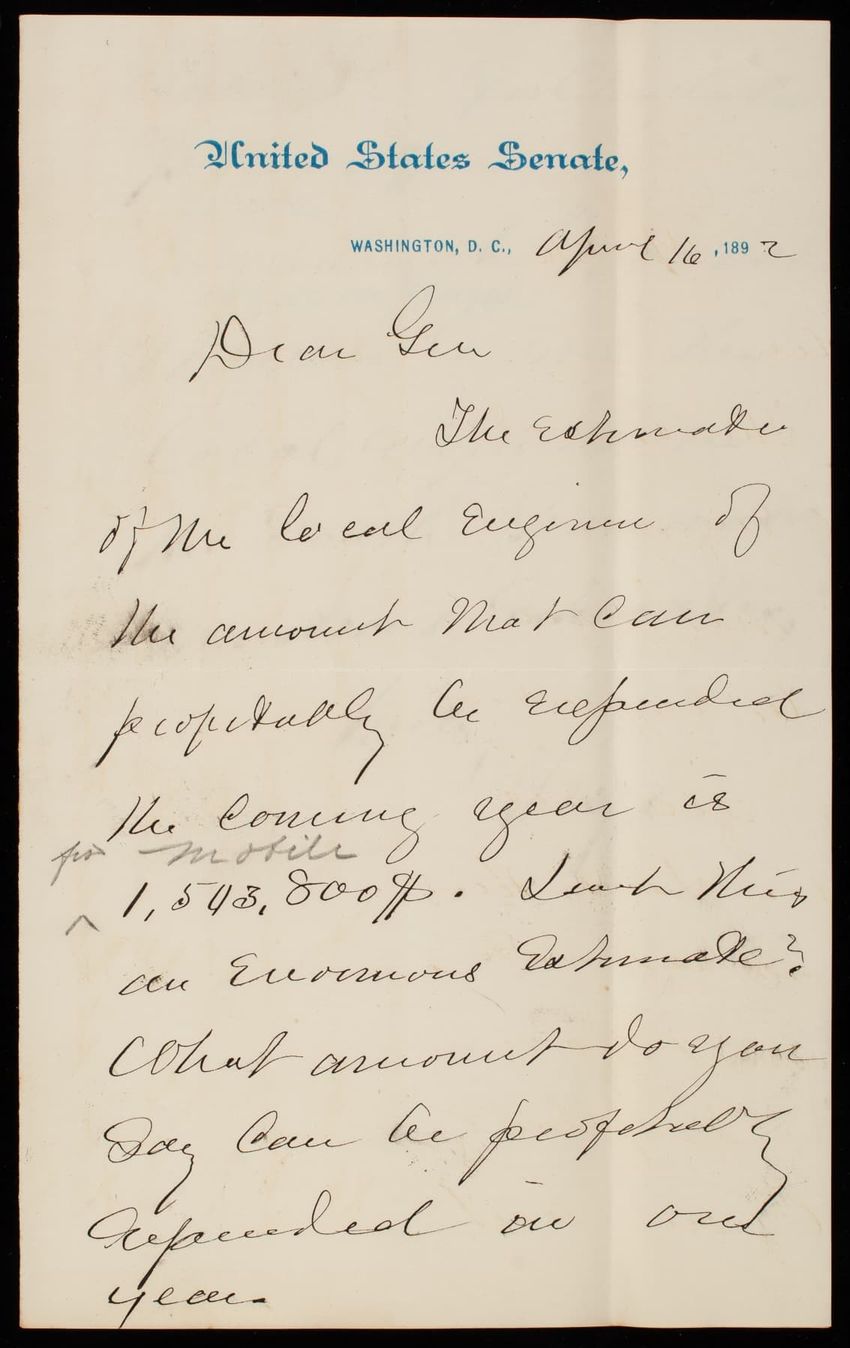 United States Senate,
WASHINGTON, D. C., April 16, 1892
Dear Gen
The Estimate
of the local Engineer of
the amount that can
profitably be expended
the coming year is
for Mobile
^ 1,543,800$. Isnt this
an Enormous Estimate?
What amount do you
Say can be profitably
expended in one
year.